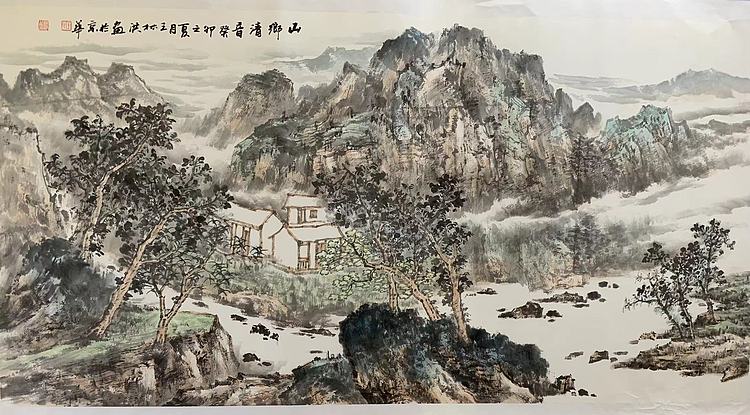 山鄉清音癸卯之夏月王林洪畫於京華